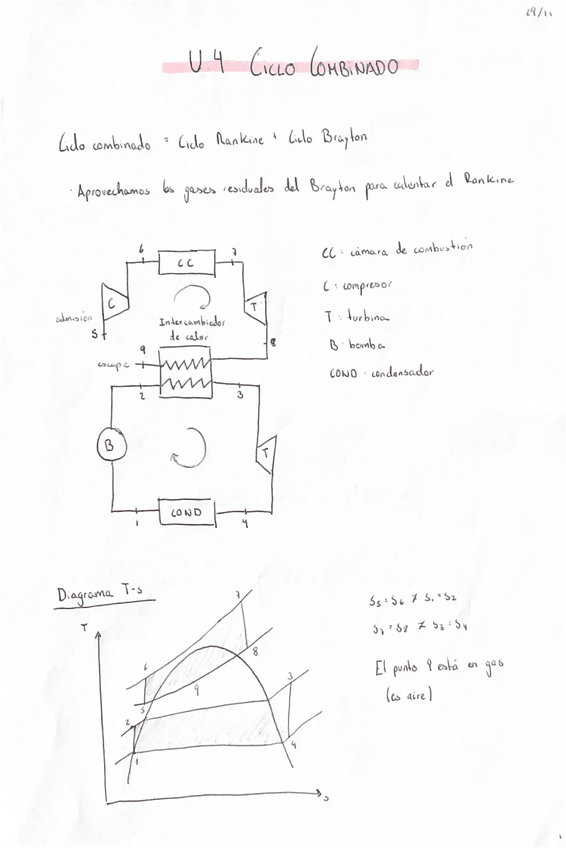 29/11
U4 CICLO COMBINADO
Ciclo combinado = Ciclo Rankine + Ciclo Brayton
· Aprovechamos los gases residuales del Brayton para calentar el Rankine
6
CC
7
CC: cámara de combustión
C
T
C: compresor
admisión
5
Intercambiador
de calor
T: turbina
8
9
B: bomba
escape
2
3
COND: condensador
B
T
COND
1
4
Diagrama T-s
T
7
S5 = S6 ≠ S1 = S2
S7 = S8 ≠ S3 = S4
6
8
9
3
El punto 9 está en gas
(es aire)
5
2
1
4
s